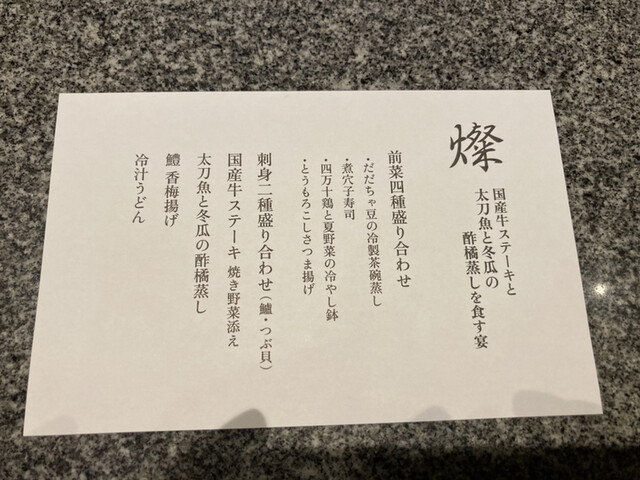 燦
国産牛ステーキと
太刀魚と冬瓜の
酢橘蒸しを食す宴
前菜四種盛り合わせ
・だだちゃ豆の冷製茶碗蒸し
・煮穴子寿司
・四万十鶏と夏野菜の冷やし鉢
・とうもろこしさつま揚げ
刺身二種盛り合わせ（鱸・つぶ貝）
国産牛ステーキ 焼き野菜添え
太刀魚と冬瓜の酢橘蒸し
鱧 香梅揚げ
冷汁うどん